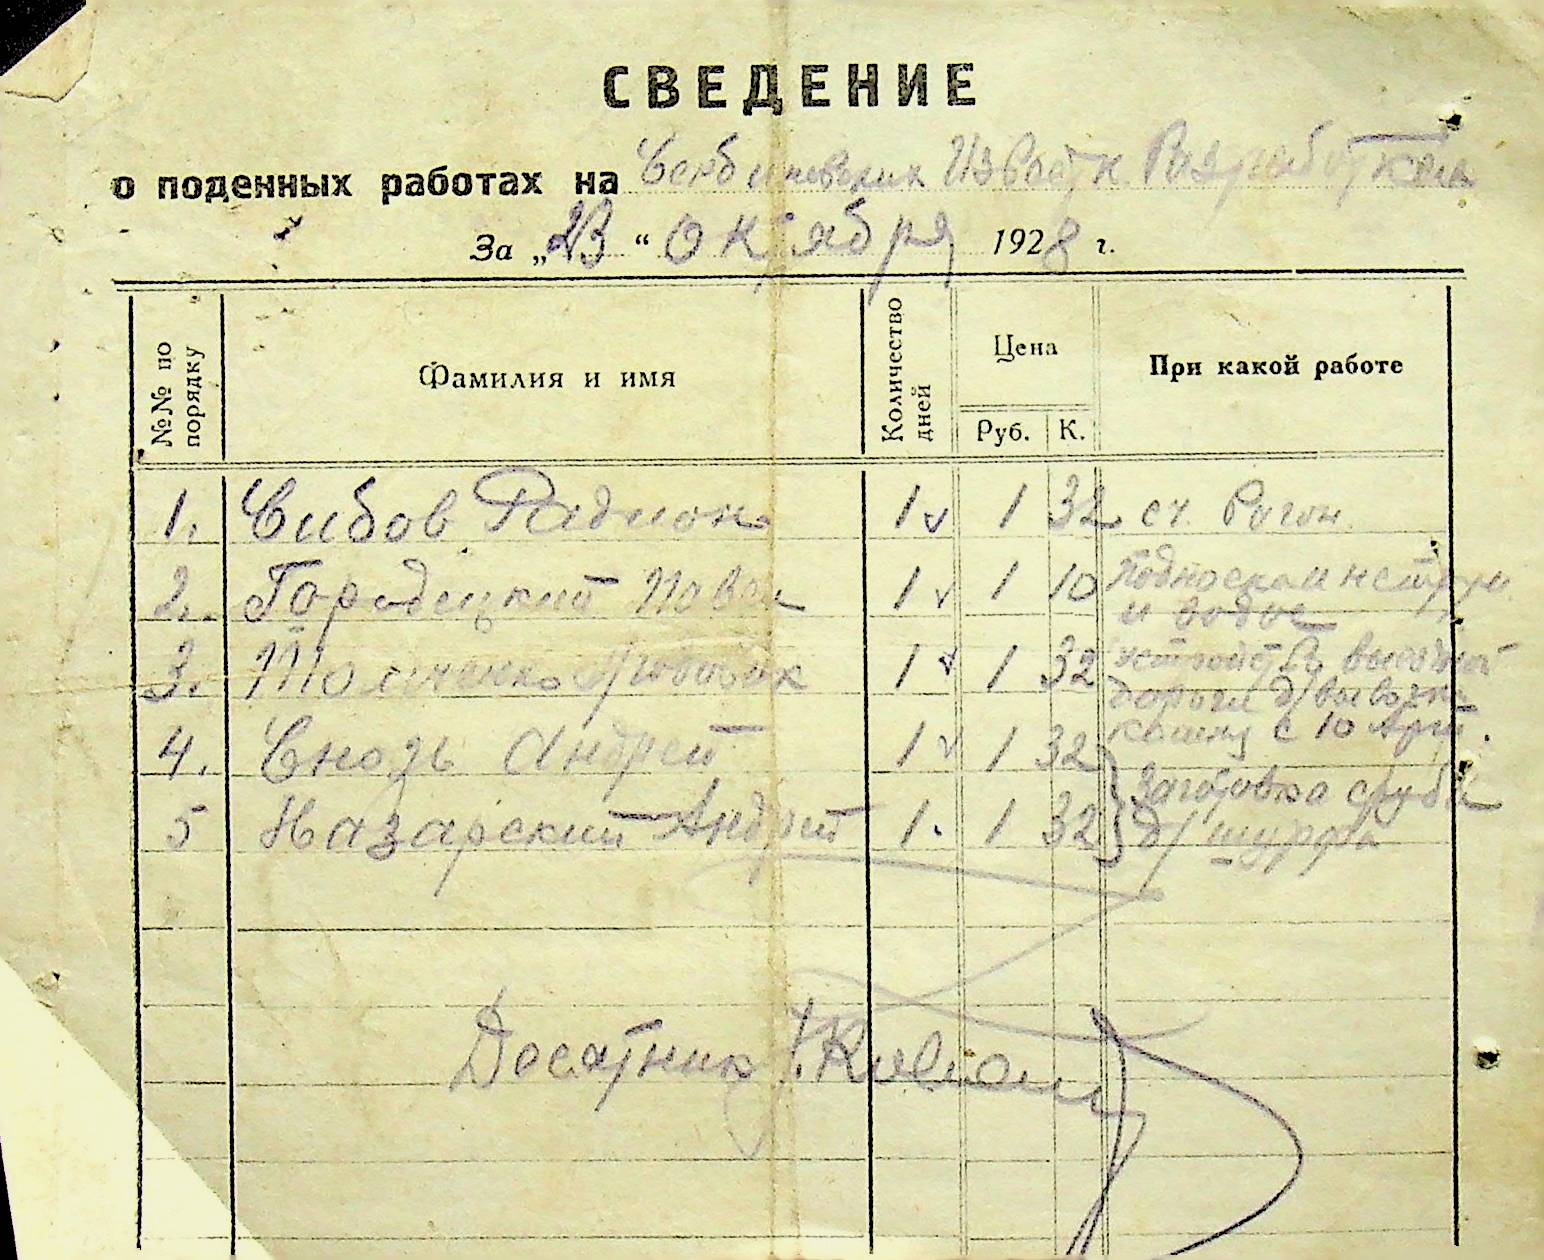 СВЕДЕНИЕ
о поденных работах на Известк. Разработках
За „23“ Октября 1928 г.
№№ по порядку
Фамилия и имя
Количество дней
Цена
Руб. К.
При какой работе
1. Сибов Радион 1 1 32 ст.
2. Городецкий Павел 1 1 10
и воды
3. 1 1 32 устройств.
дороги д/вывозки
камня с 10 Арт.
4. Андрей 1 1 32
5 Назарский Андрей 1. 1 32 Заготовка сруба
д/ шурфа
Десятник